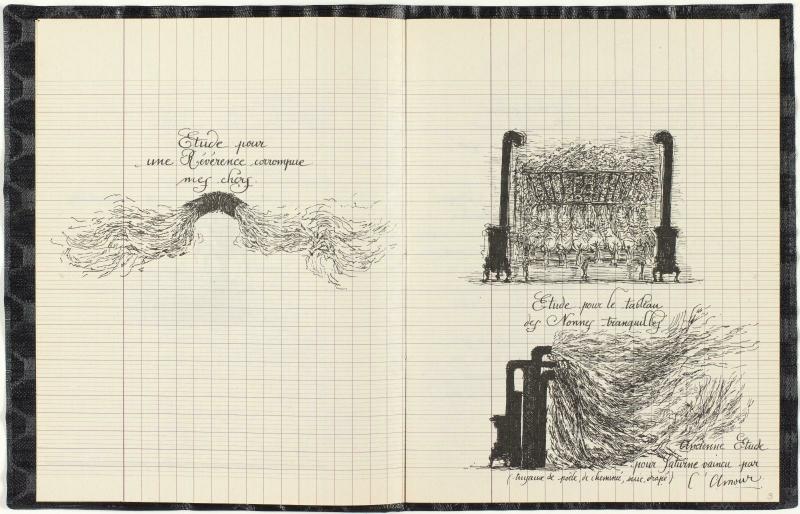 Etude pour
une Révérence corrompue
mes chers
Etude pour le tableau
des Nonnes tranquilles
Ancienne Etude
pour Saturne vaincu par
(tuyaux de poêle, de cheminée, suie, drapé) L'Amour
3